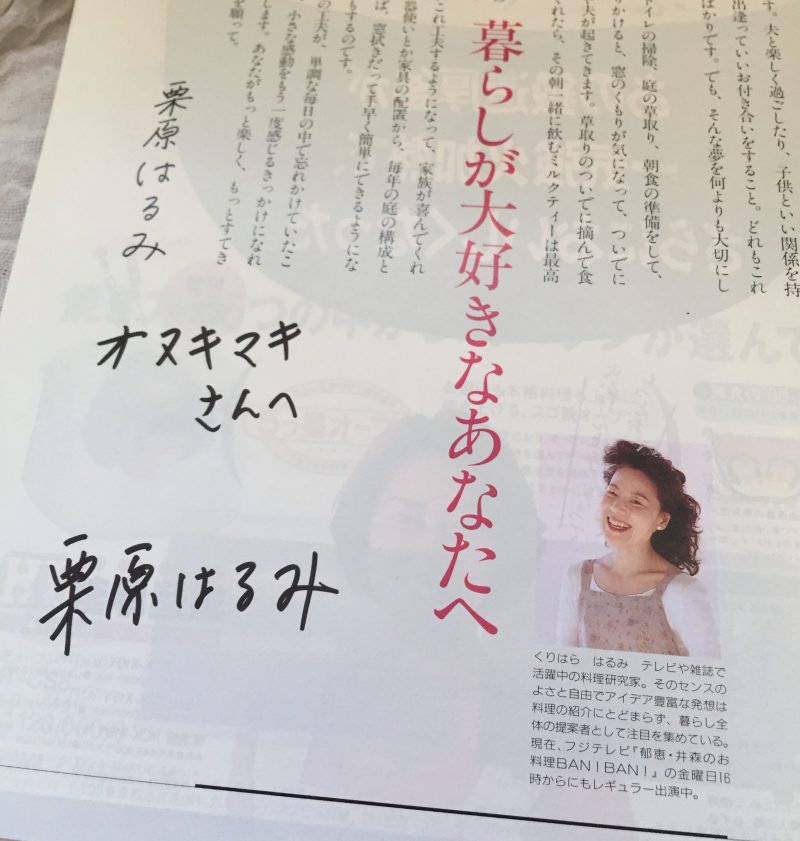 す。夫と楽しく過ごしたり、子供といい関係を持
出逢っていいお付き合いをすること。どれもこれ
ばかりです。でも、そんな夢を何よりも大切にし
トイレの掃除、庭の草取り、朝食の準備をして、
りかけると、窓のくもりが気になって、ついでに
夫が起きてきます。草取りのついでに摘んで食
くれたら、その朝一緒に飲むミルクティーは最高
暮らしが大好きなあなたへ
これ工夫するようになって、家族が喜んでくれ
器使いとか家具の配置から、毎年の庭の構成と
ば、窓拭きだって手早く簡単にできるようにな
もするのです。
の工夫が、単調な毎日の中で忘れかけていたこ
、小さな感動をもう一度感じるきっかけになれ
します。あなたがもっと楽しく、もっとすてき
を願って。
栗原はるみ
オヌキマキ
さんへ
栗原はるみ
くりはら はるみ テレビや雑誌で
活躍中の料理研究家。そのセンスの
よさと自由でアイデア豊富な発想は
料理の紹介にとどまらず、暮らし全
体の提案者として注目を集めている。
現在、フジテレビ『郁恵・井森のお
料理BAN!BAN!』の金曜日16
時からにもレギュラー出演中。